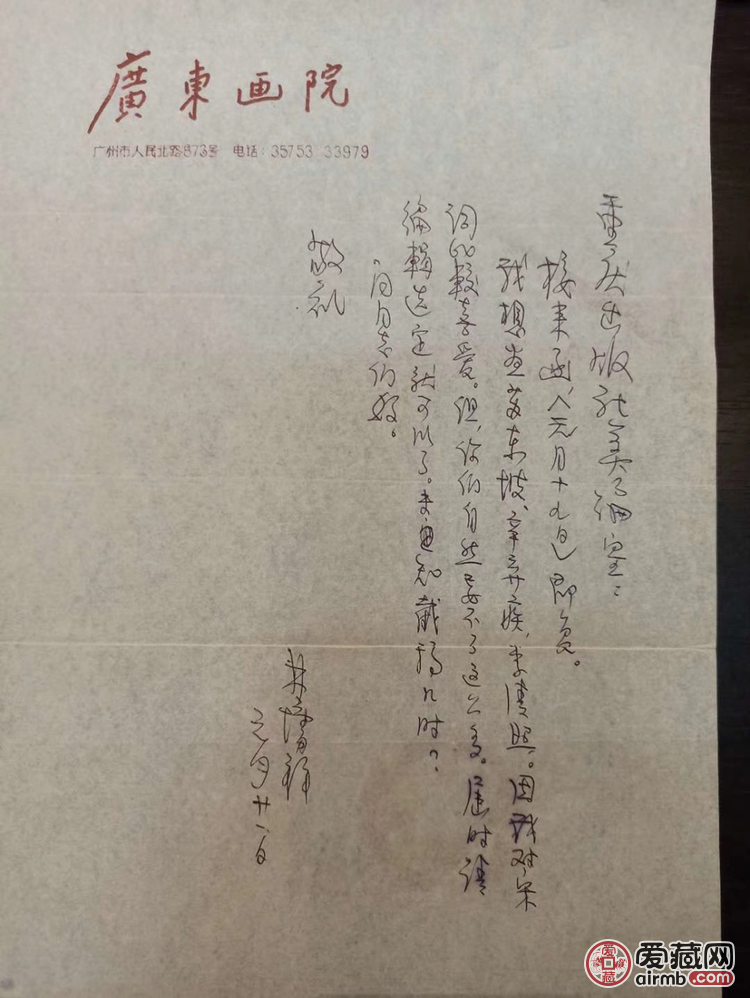 廣東画院
广州市人民北路873号 电话:35753 33979
重庆出版社美编室:
接来函,(元月十九日)即复。
我想画苏东坡、辛弃疾,李清照。因我对宋
词比較喜爱。但,你们自然要不了这么多。届时请
编輯选定就可以了。来通知截稿几时?
同志们好。
敬礼
林墉
元月廿一日
爱藏网
airmb.com